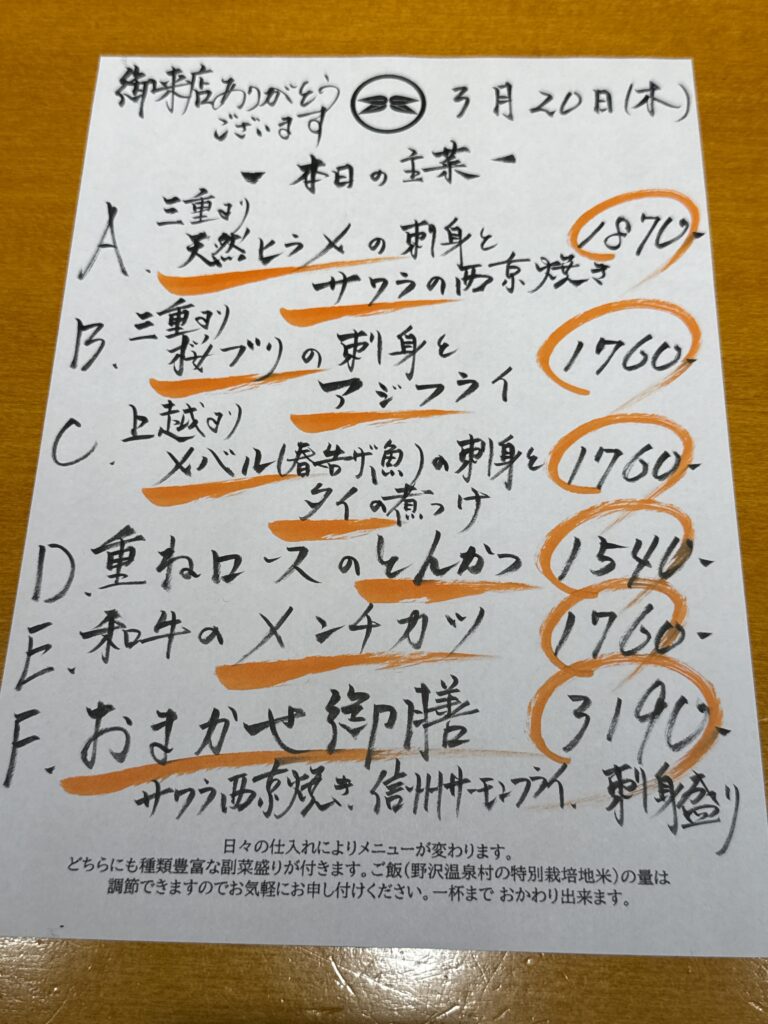 御来店ありがとう
ございます
3月20日(木)
- 本日の主菜 -
A. 三重より
天然ヒラメの刺身と
サワラの西京焼き
1870-
B. 三重より
桜ブリの刺身と
アジフライ
1760-
C. 上越より
メバル(春告ゲ魚)の刺身と
タイの煮つけ
1760-
D. 重ねロースのとんかつ 1540-
E. 和牛のメンチカツ 1760-
F. おまかせ御膳 3190-
サワラ西京焼き、信州サーモンフライ、刺身盛り
日々の仕入れによりメニューが変わります。
どちらにも種類豊富な副菜盛りが付きます。ご飯(野沢温泉村の特別栽培地米)の量は
調節できますのでお気軽にお申し付けください。一杯まで おかわり出来ます。